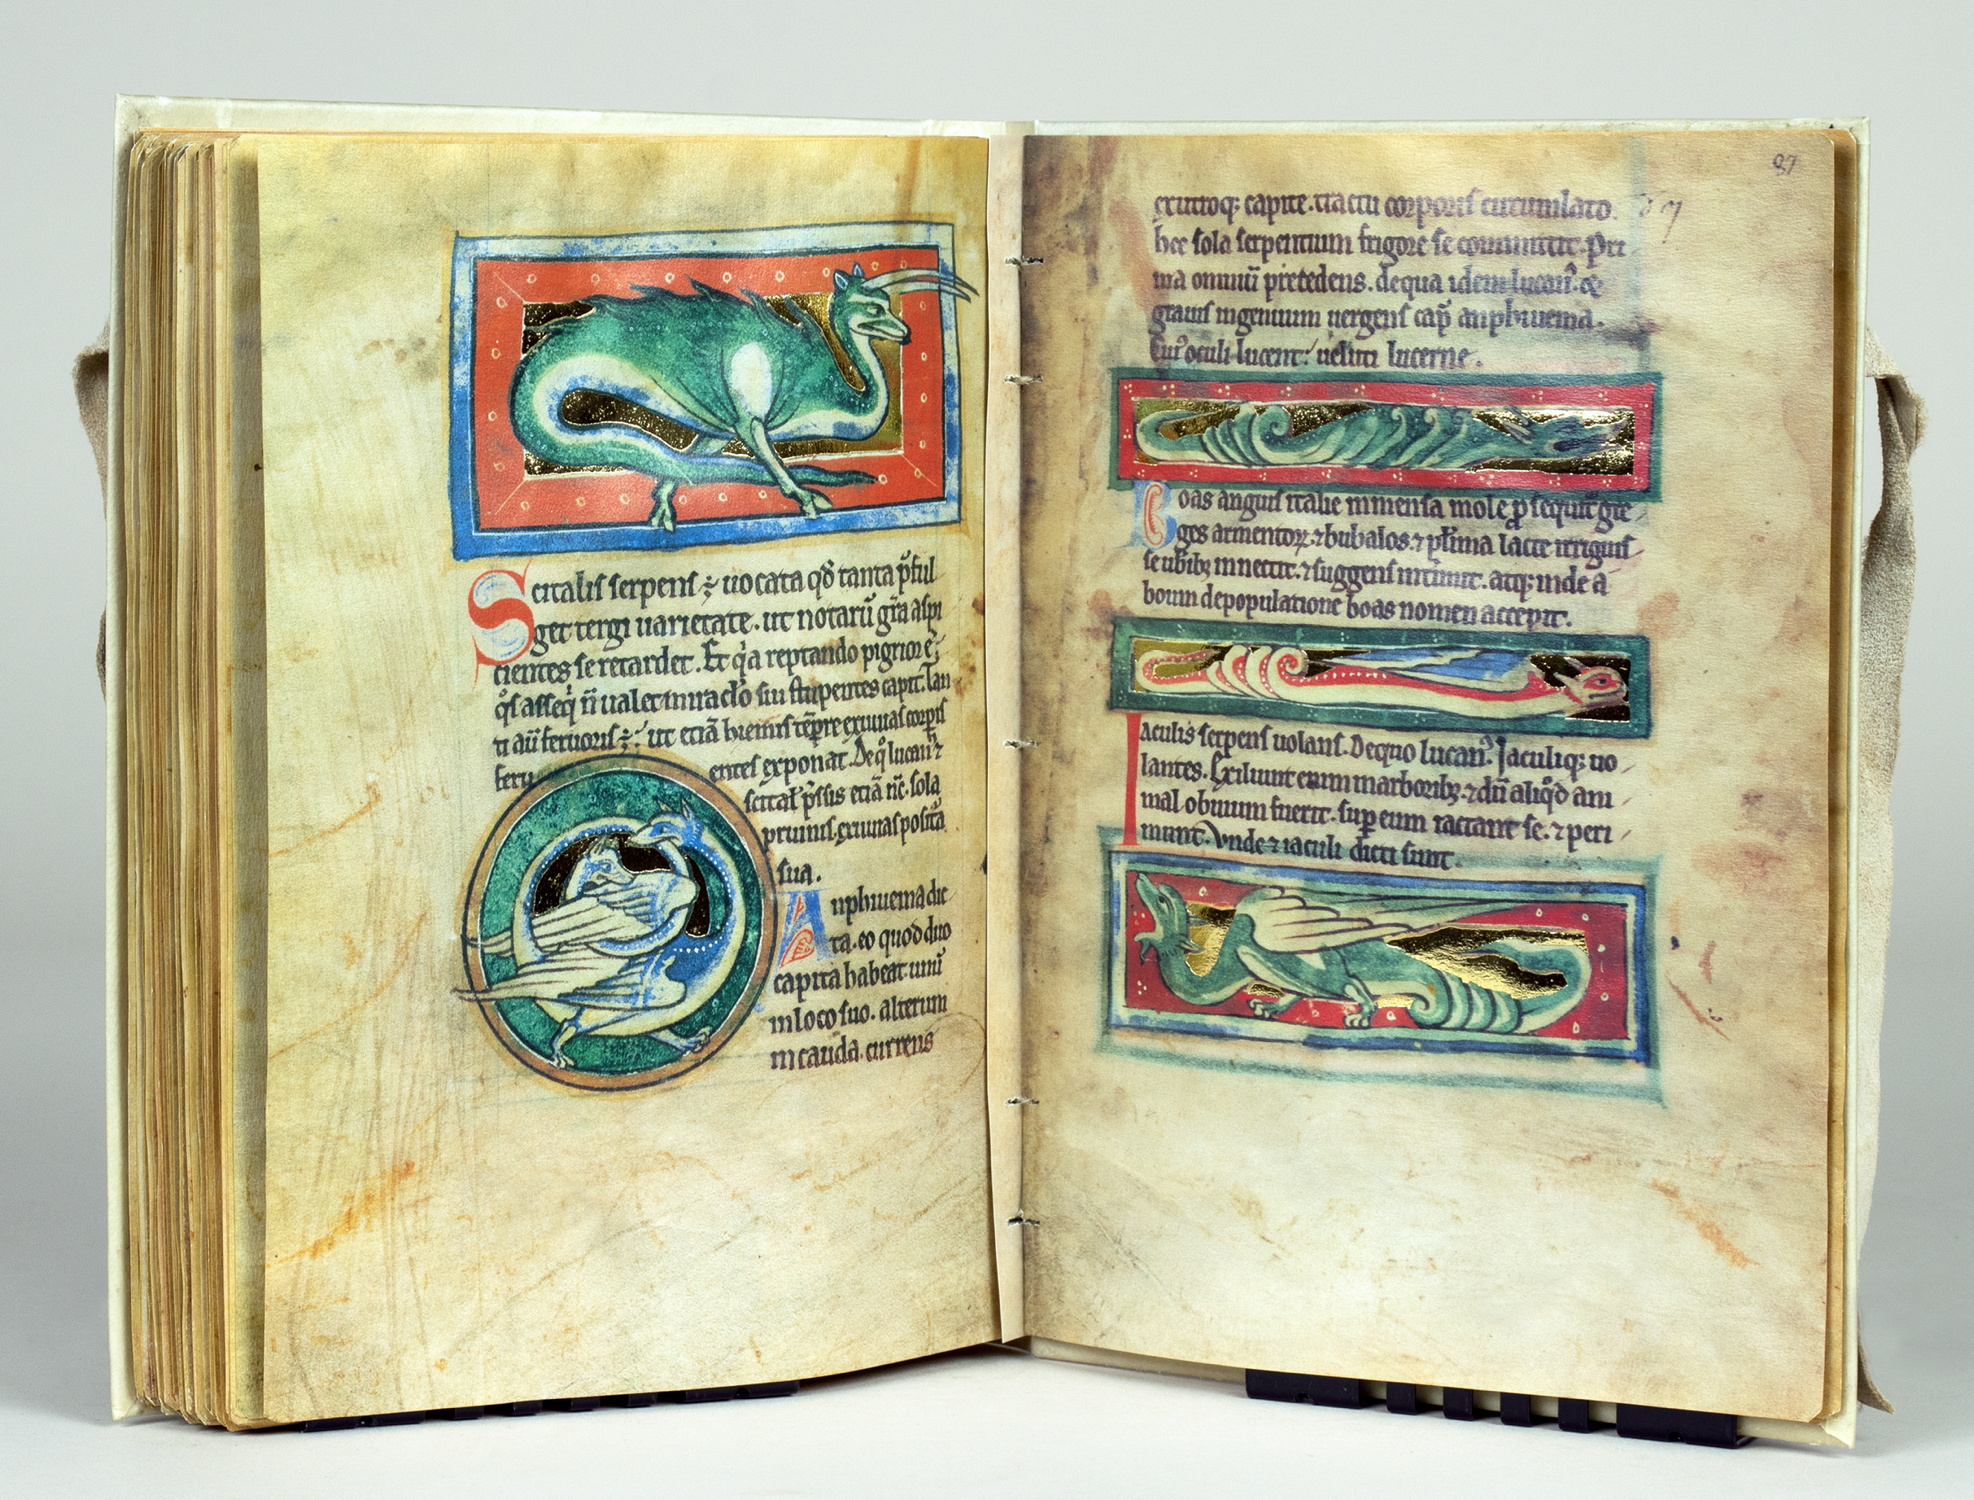 Scitalis serpens ÷ uocata qđ tanta p̃ful
get tergi uarietate. ut notarū gr̃a aspi
cientes se retardet. Et q̃a reptando pigrior ē;
q̊s asseq̃ ñ ualet miraclo suo stupentes capit. Tan
ti aũ feruoris ÷; ut etiā hiemis tēpre exuuias corpis
feru entes exponat. De q̊ lucan᷒
scital᷒ sp̃sis etiā nc̄ sola
pruinis, exuuias positā
sua.
Anphiuema dic
ta. eo quod duo
capita habeat. unū
in loco suo. alterum
in cauda. currens
87
exutroq; capite. tractu corporis circumlato.
hec sola serpentium frigore se committit. Pri
ma omniū p̃cedens. de qua idem lucan᷒. &
grauis in geminum uergens cap̃ anphiuema.
Cui᷒ oculi lucent; ueluti lucerne.
Boas anguis italie inmensa mole p̱sequit̃ gre
ges armentoꝝ. ⁊ bubalos. ⁊ plurima lacte irriguis
se ubib; innectit. ⁊ suggens intimit. atq; inde a
boum depopulatione boas nomen accepit.
Iaculis serpens uolans. De quo lucan᷒. Iaculiq; uo
lantes. Exiliunt enim in arborib; ⁊ dū aliq̊d ani
mal obuium fuerit. sup̱ eum iactant se. ⁊ peri
munt. Vnde ⁊ iaculi dicti sunt.